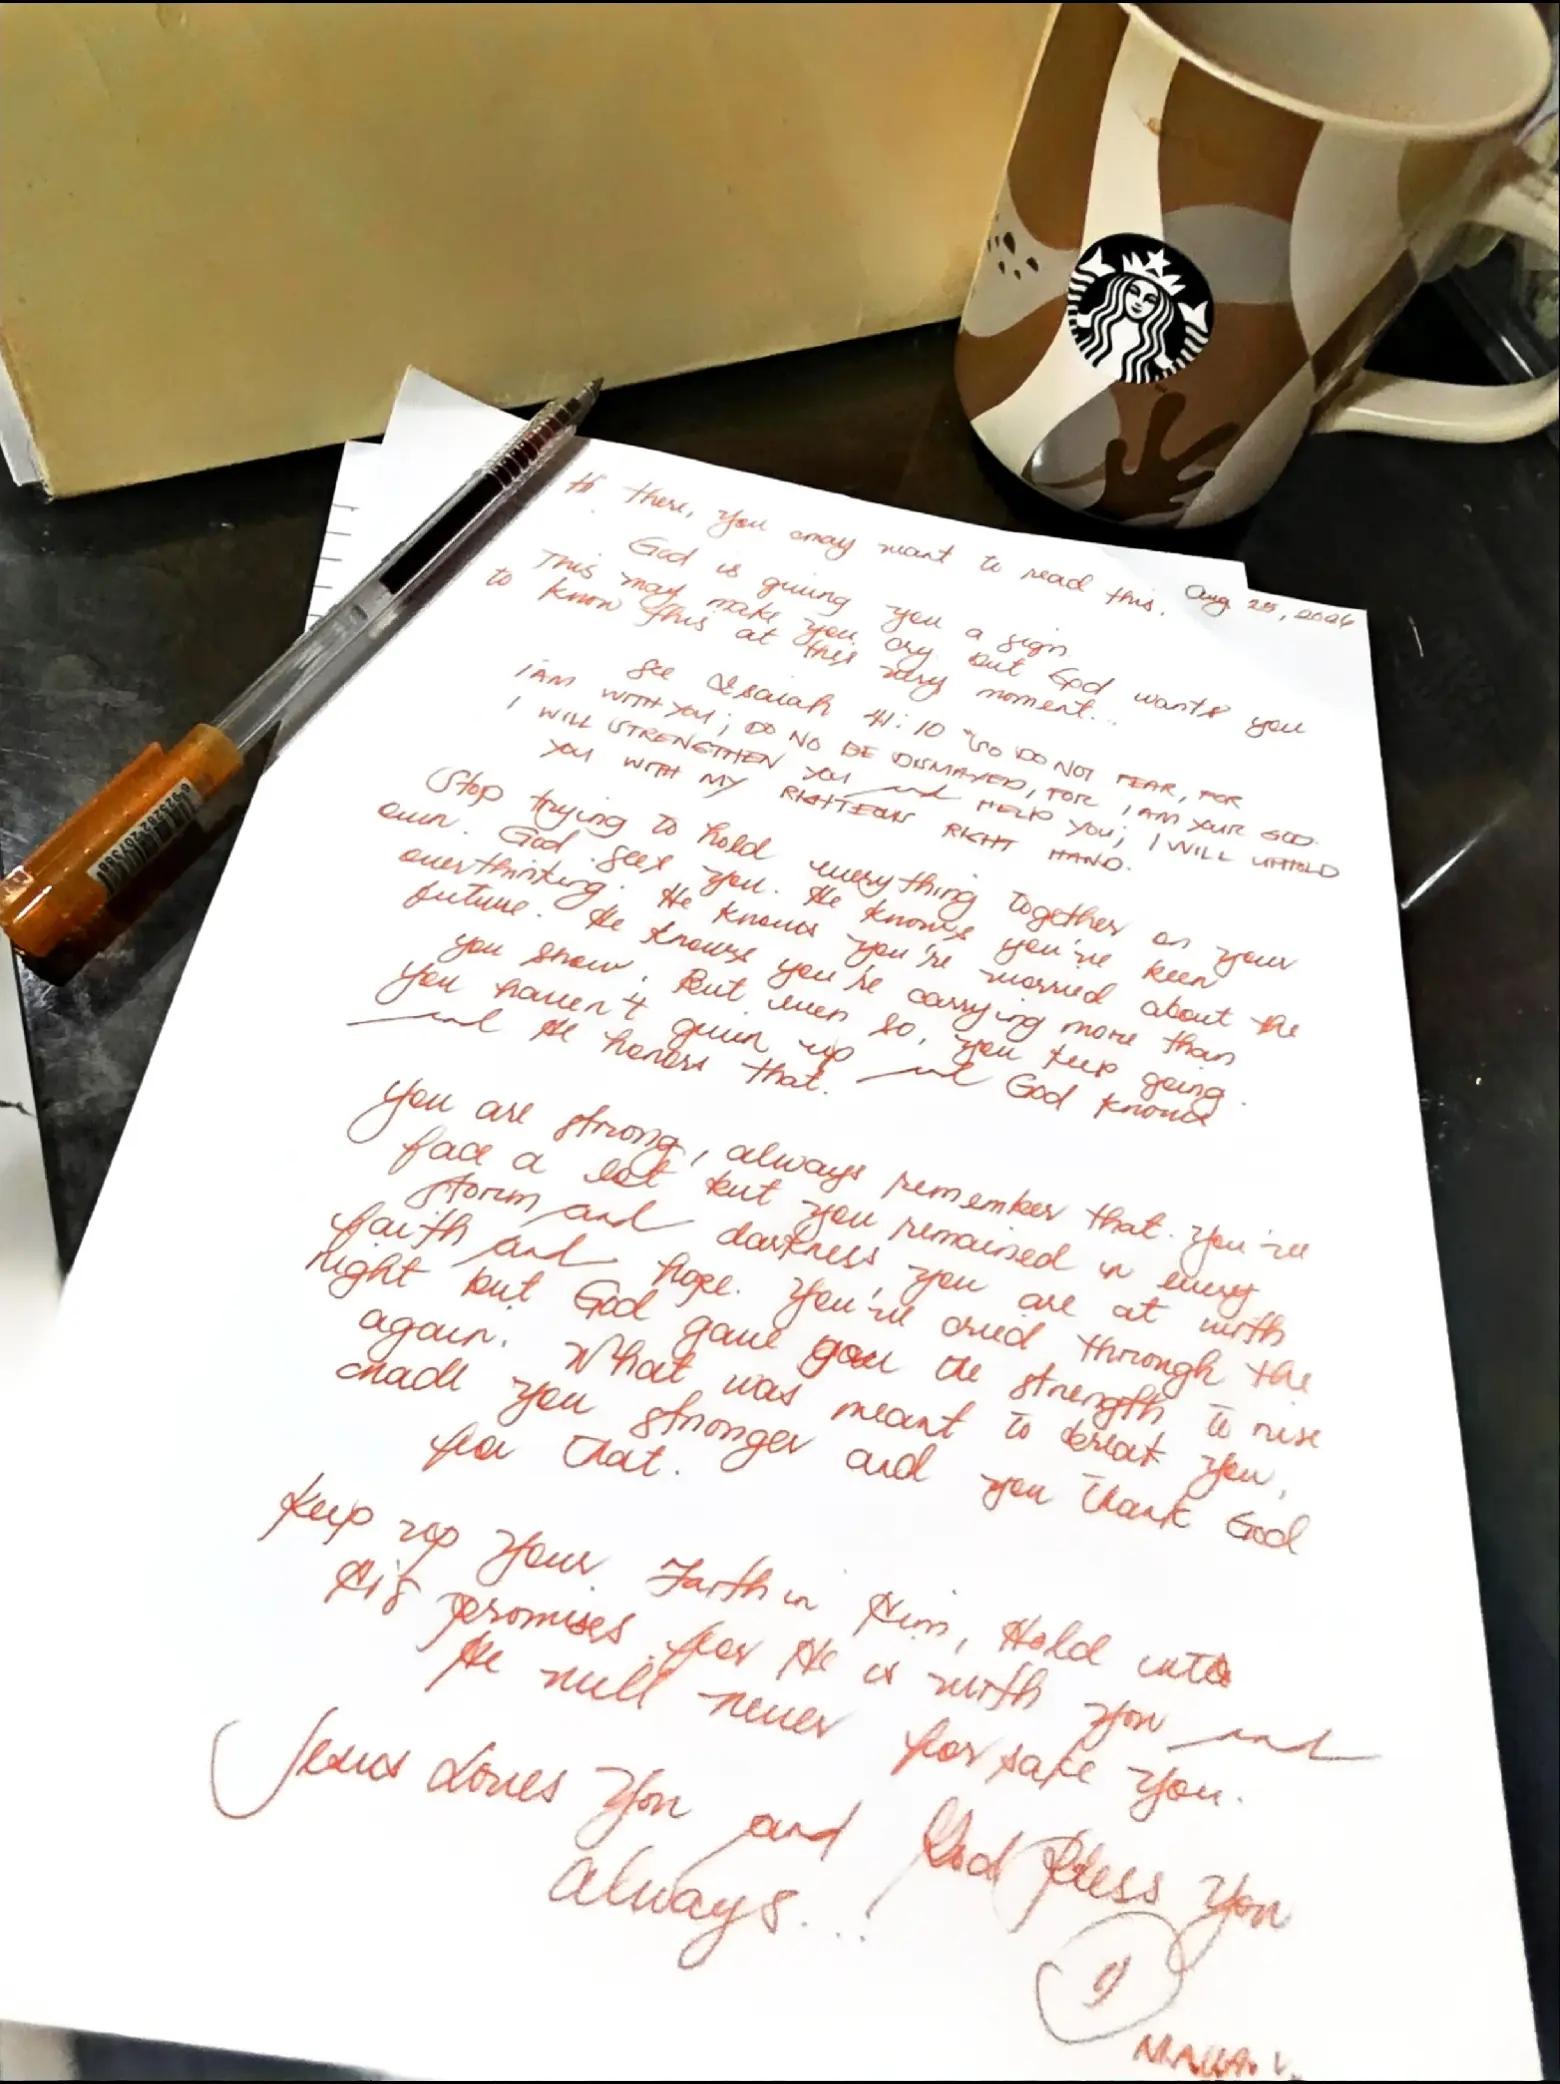 Hi there, you may want to read this. Aug 25, 2026
God is giving you a sign
This may make you cry but God wants you
to know this at this very moment...
See Isaiah 41:10 "SO DO NOT FEAR, FOR
I AM WITH YOU; DO NO BE DISMAYED, FOR I AM YOUR GOD.
I WILL STRENGTHEN YOU and HELP YOU; I WILL UPHOLD
YOU WITH MY RIGHTEOUS RIGHT HAND.
Stop trying to hold everything together on your
own. God sees you. He knows you've been
overthinking. He knows you're worried about the
future. He knows you're carrying more than
you show. But even so, you keep going.
You haven't given up and God knows
and He honors that.
You are strong, always remember that. You've
face a lot but you remained in every
storm and darkness you are at with
faith and hope. You've cried through the
night but God gave you the strength to rise
again. What was meant to defeat you,
made you stronger and you thank God
for that.
Keep up your Faith in Him, Hold unto
His promises for He is with you and
He will never forsake you.
Jesus Loves You and God Bless You
always...